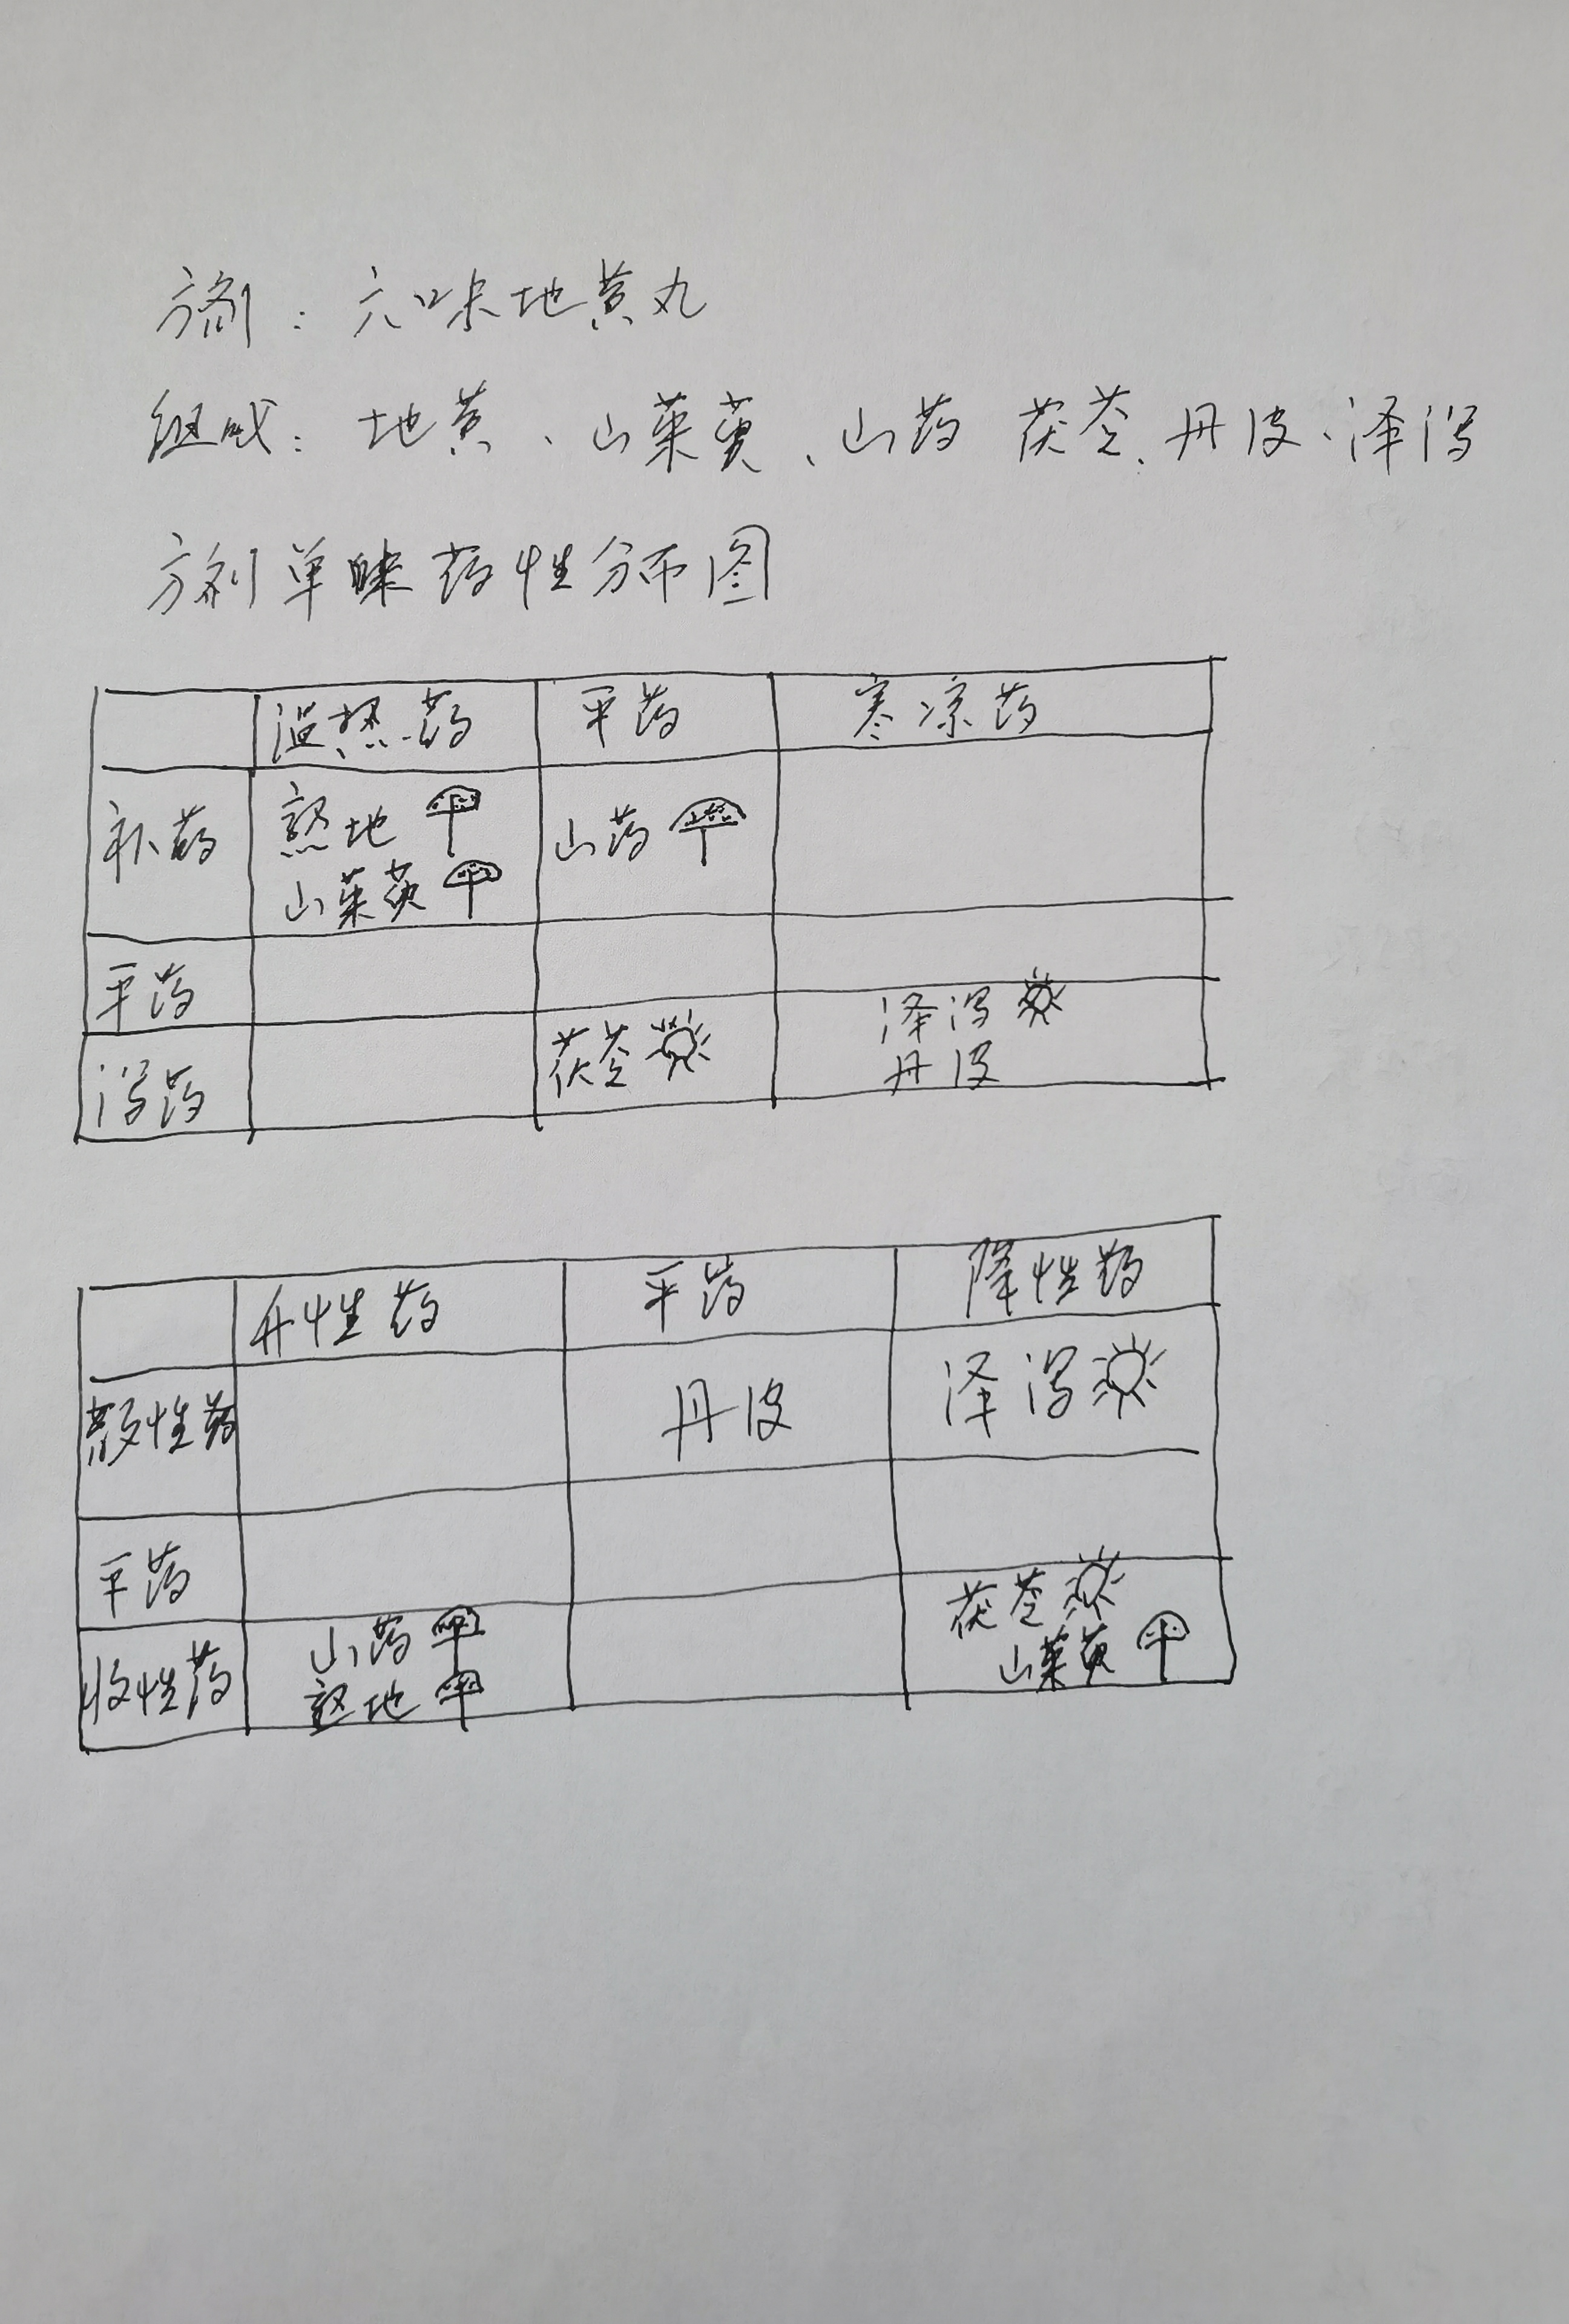 方剂：六味地黄丸
组成：地黄、山茱萸、山药 茯苓、丹皮、泽泻
方剂单味药性分布图
温热药 平药 寒凉药
补药 熟地 山药
山茱萸
平药
泻药 茯苓 泽泻
丹皮
升性药 平药 降性药
散性药 丹皮 泽泻
平药
收性药 山药 茯苓
熟地 山茱萸